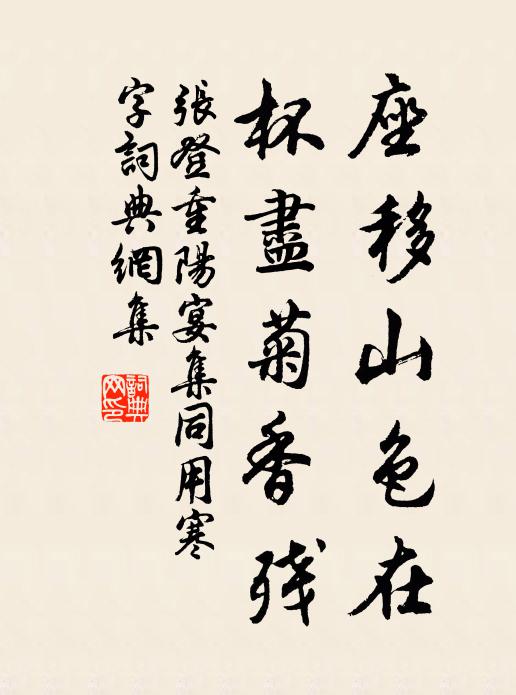 座移山色在
杯盡菊香殘
張登重陽宴集同用寒
字詞典網集
詞典網印